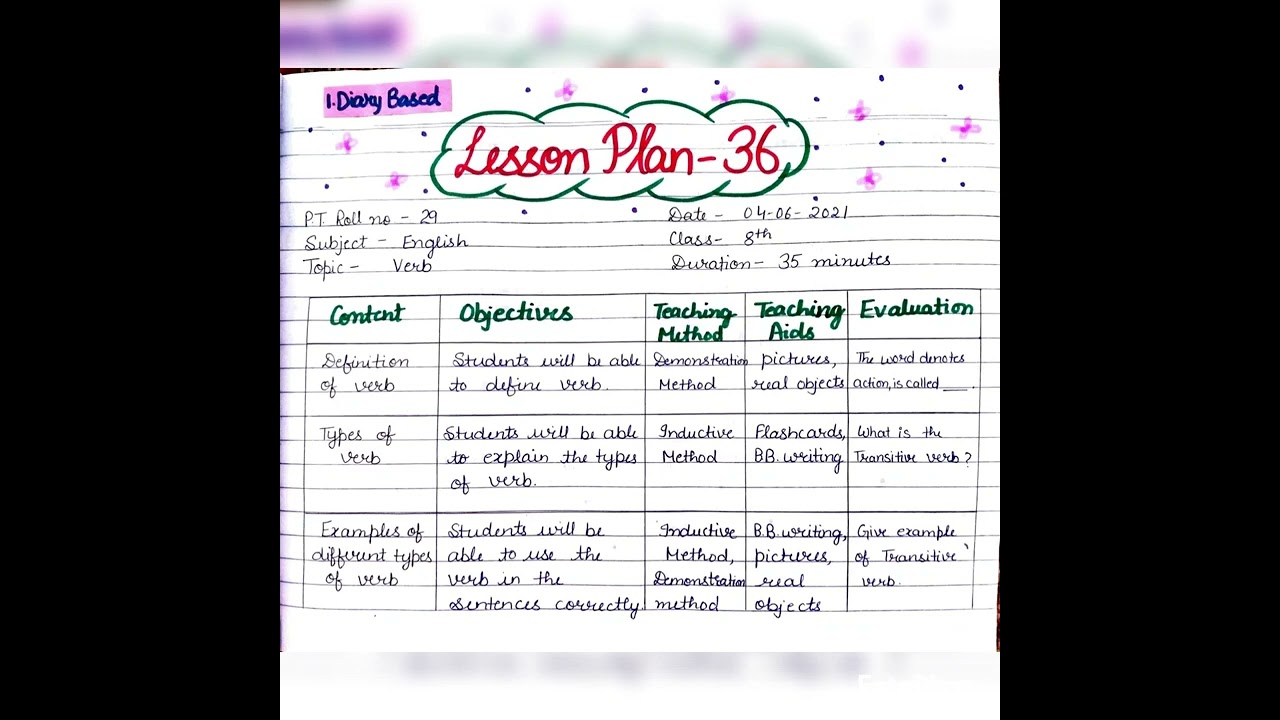 1. Diary Based
Lesson Plan - 36
P.T. Roll no - 29
Date - 04-06-2021
Subject - English
Class- 8th
Topic - Verb
Duration - 35 minutes
Content
Objectives
Teaching
Method
Teaching
Aids
Evaluation
Definition
of verb
Students will be able
to define verb.
Demonstration
Method
pictures,
real objects
The word denotes
action, is called ___.
Types of
verb
Students will be able
to explain the types
of verb.
Inductive
Method
Flashcards,
B.B. writing
What is the
Transitive verb?
Examples of
different types
of verb
Students will be
able to use the
verb in the
sentences correctly.
Inductive
Method,
Demonstration
method
B.B. writing,
pictures,
real
objects
Give example
of Transitive
verb.